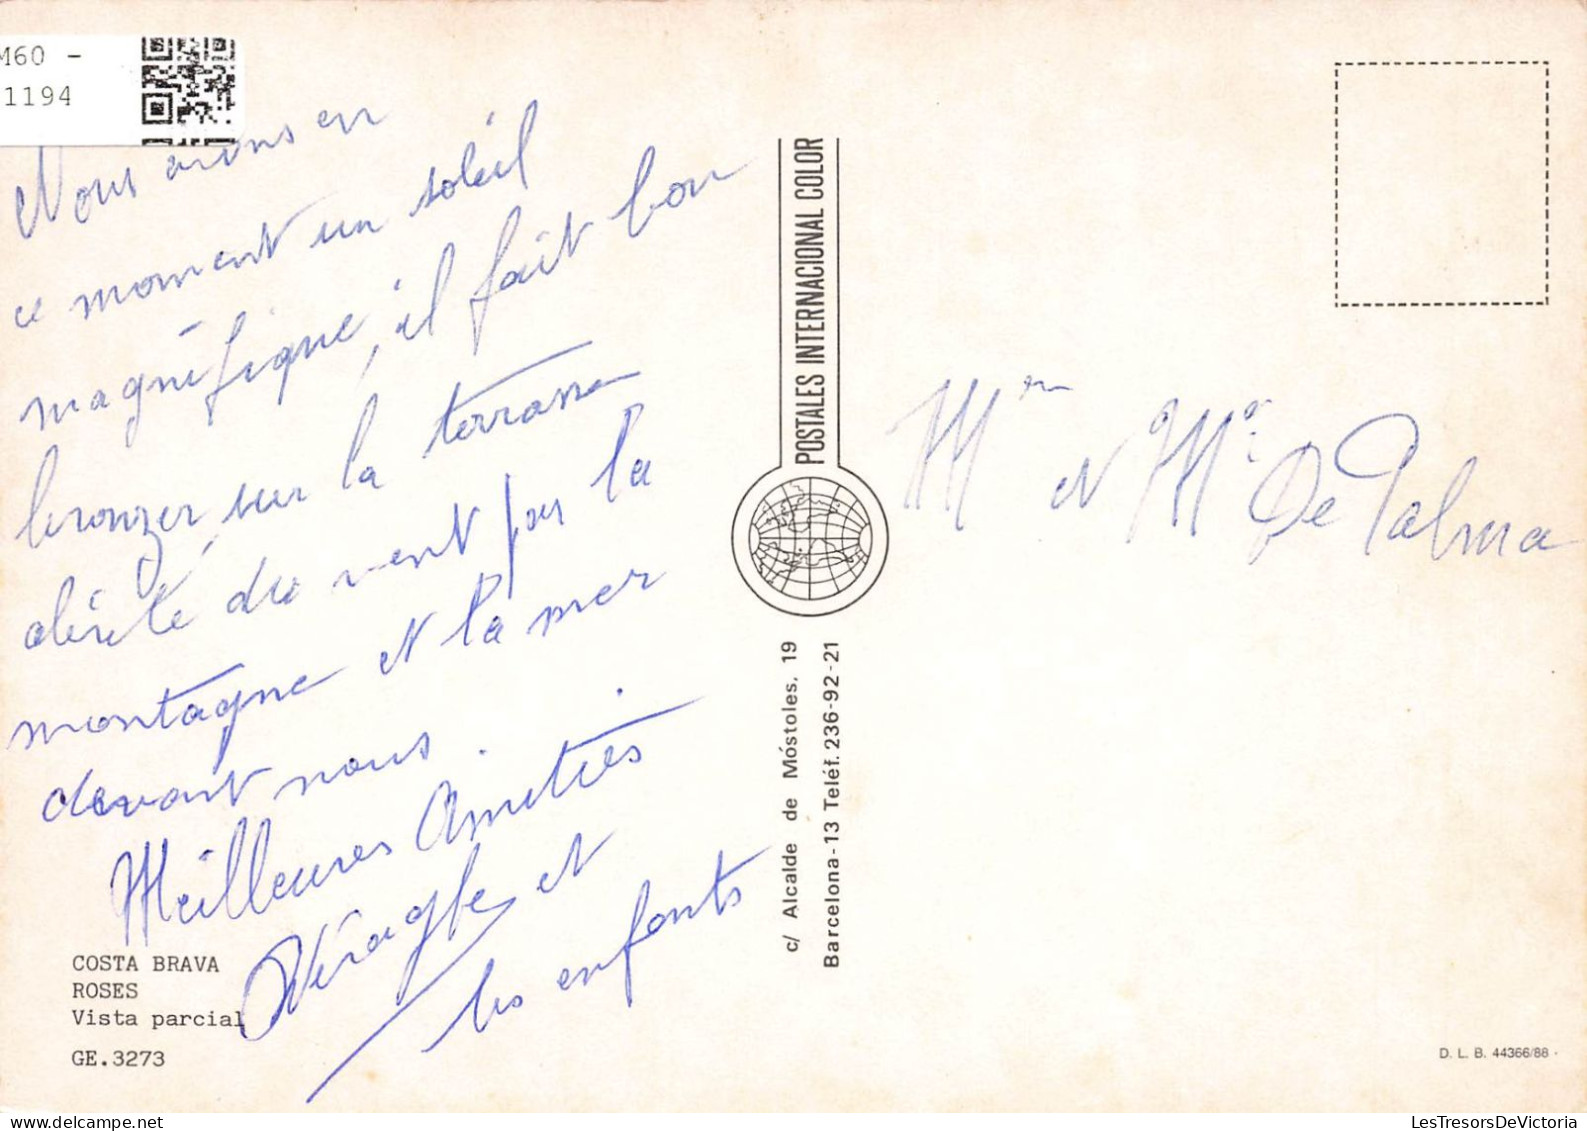 M60 -
1194
Nous avons en
ce moment un soleil
magnéfique, il fait bon
bronzer, sur la terrasse
abrité du vent par la
montagne et la mer
devant nous.
Meilleures Amitiés
et
les enfants
COSTA BRAVA
ROSES
Vista parcial
GE.3273
POSTALES INTERNACIONAL COLOR
c/ Alcalde de Móstoles, 19
Barcelona-13 Teléf. 236-92-21
Mme et Mr De Palma
D. L. B. 44366/88
LesTresorsDeVictoria